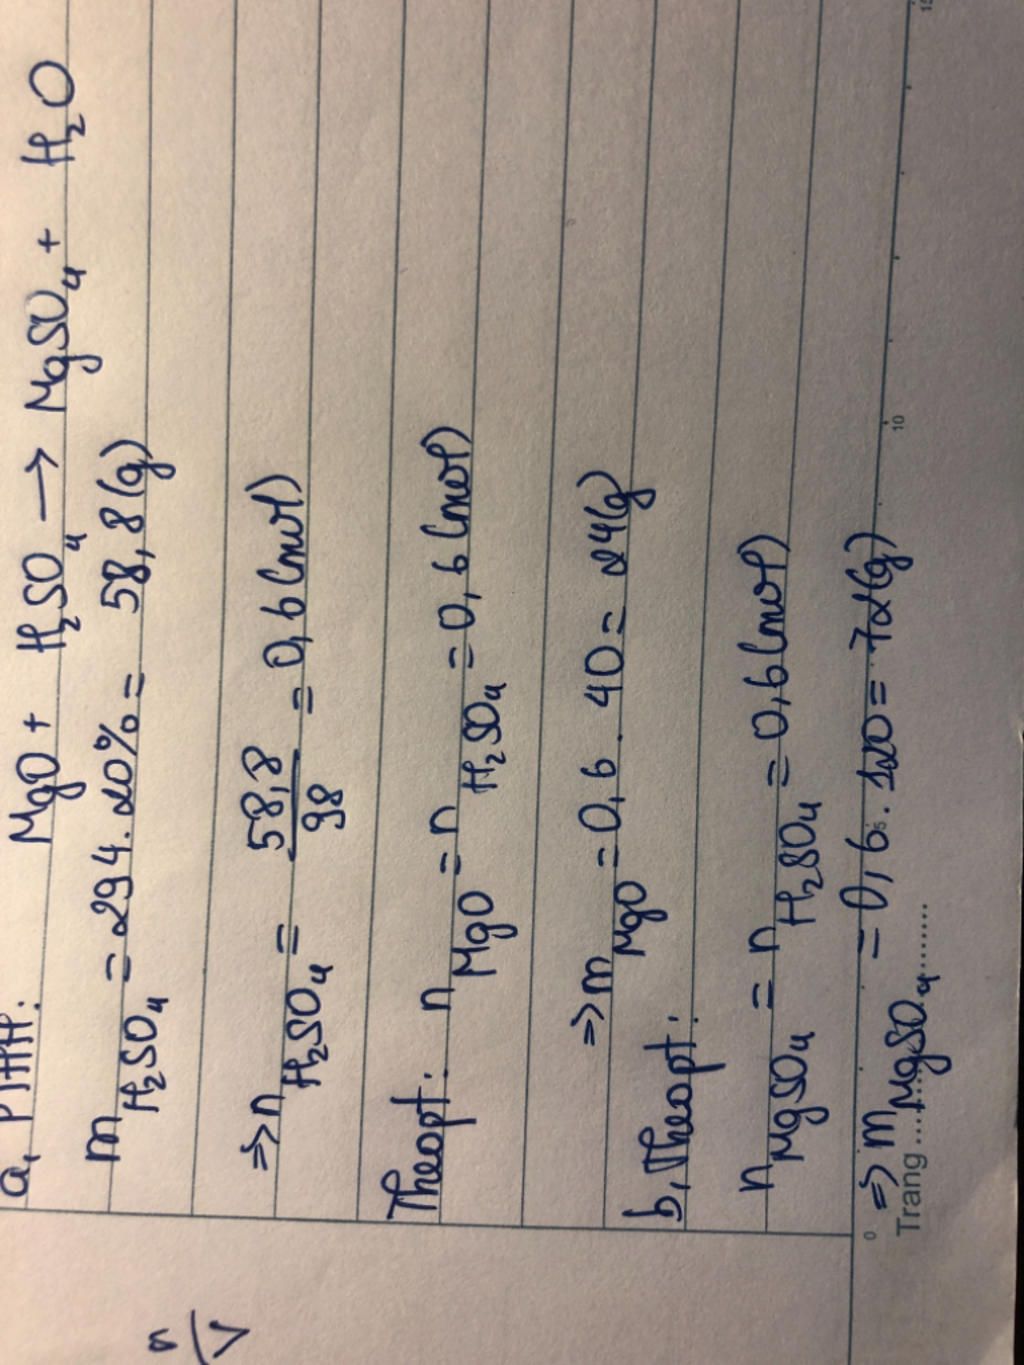 a, PTHH: MgO + H₂SO₄ → MgSO₄ + H₂O
m H₂SO₄ = 294 . 20% = 58,8 (g)
=> n H₂SO₄ = 58,8 / 98 = 0,6 (mol)
Theo pt: n MgO = n H₂SO₄ = 0,6 (mol)
=> m MgO = 0,6 . 40 = 24 (g)
b, Theo pt:
n MgSO₄ = n H₂SO₄ = 0,6 (mol)
=> m MgSO₄ = 0,6 . 120 = 72 (g)
Trang
0 5 10 15